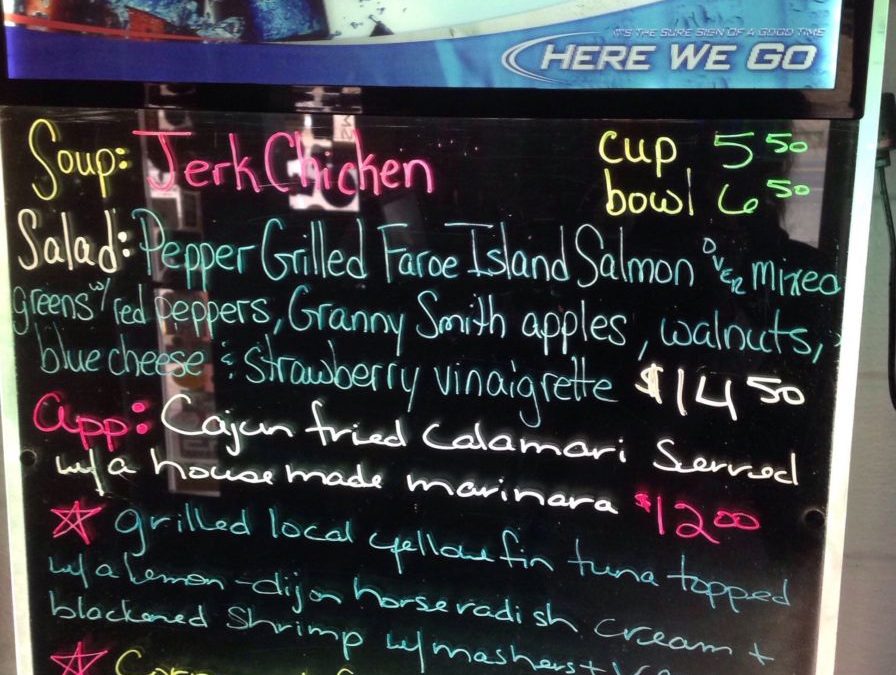 IT'S THE SURE SIGN OF A GOOD TIME
HERE WE GO
Soup: Jerk Chicken cup 5 50
bowl 6 50
Salad: Pepper Grilled Faroe Island Salmon OVER mixed
greens w/ red peppers, Granny Smith apples, walnuts,
blue cheese & strawberry vinaigrette $14 50
app: Cajun fried Calamari Served
w/ a house made marinara $12 00
grilled local yellowfin tuna topped
w/ a lemon-dijon horseradish cream +
blackened Shrimp w/ mashers +